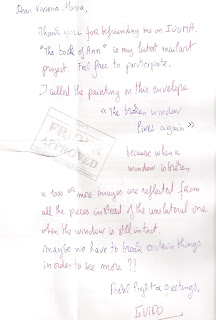 Dear Viviana, Maria,
Thank you for befriending me on IUOMA.
"The book of Ann" is my latest mailart
project. Feel free to participate.
I called the painting on this envelope
"The broken window
lives again"
because when a
window is broken
a 1000 more images are reflected from
all the pieces instead of the unilateral one
when the window is still intact.
maybe we have to break certain things
in order to see more ??
Postal light & greetings,
GUIDO
APPROVED